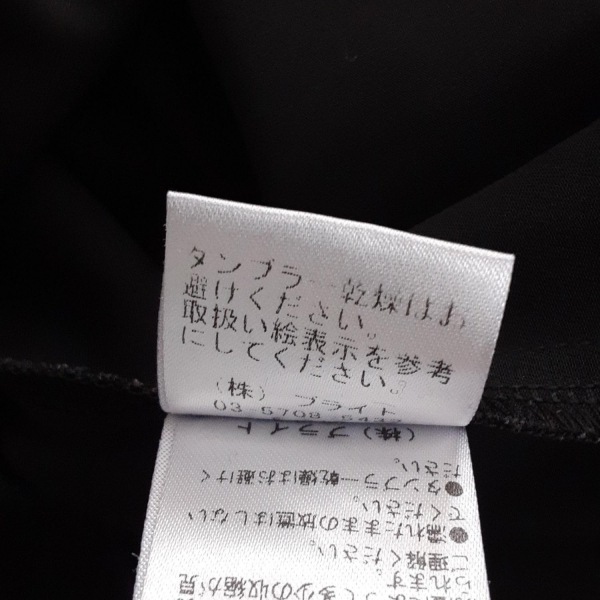 タンブラー乾燥はお
避けください。
取扱い絵表示を参考
にしてください。
(株) ブライト
03 5708
(株)ブライト
ださい。
●タンブラー乾燥はお避けく
てください。
●濡れたままの放置はしない
ご理解ください。
られます
多少の収縮が見